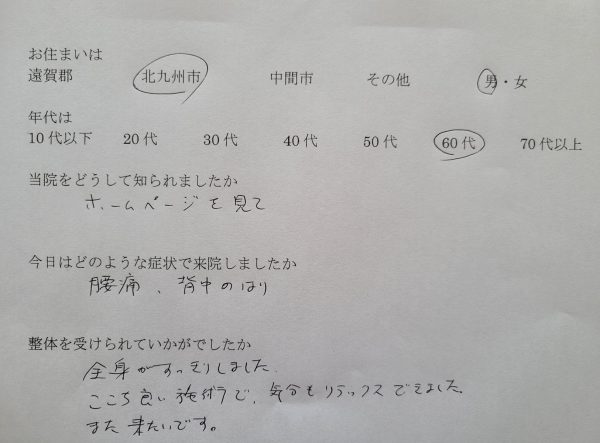 お住まいは
遠賀郡 北九州市 中間市 その他 男・女
年代は
10代以下 20代 30代 40代 50代 60代 70代以上
当院をどうして知られましたか
ホームページを見て
今日はどのような症状で来院しましたか
腰痛、背中のはり
整体を受けられていかがでしたか
全身がすっきりしました。
こころ良い施術で、気分もリラックスできました。
また来たいです。